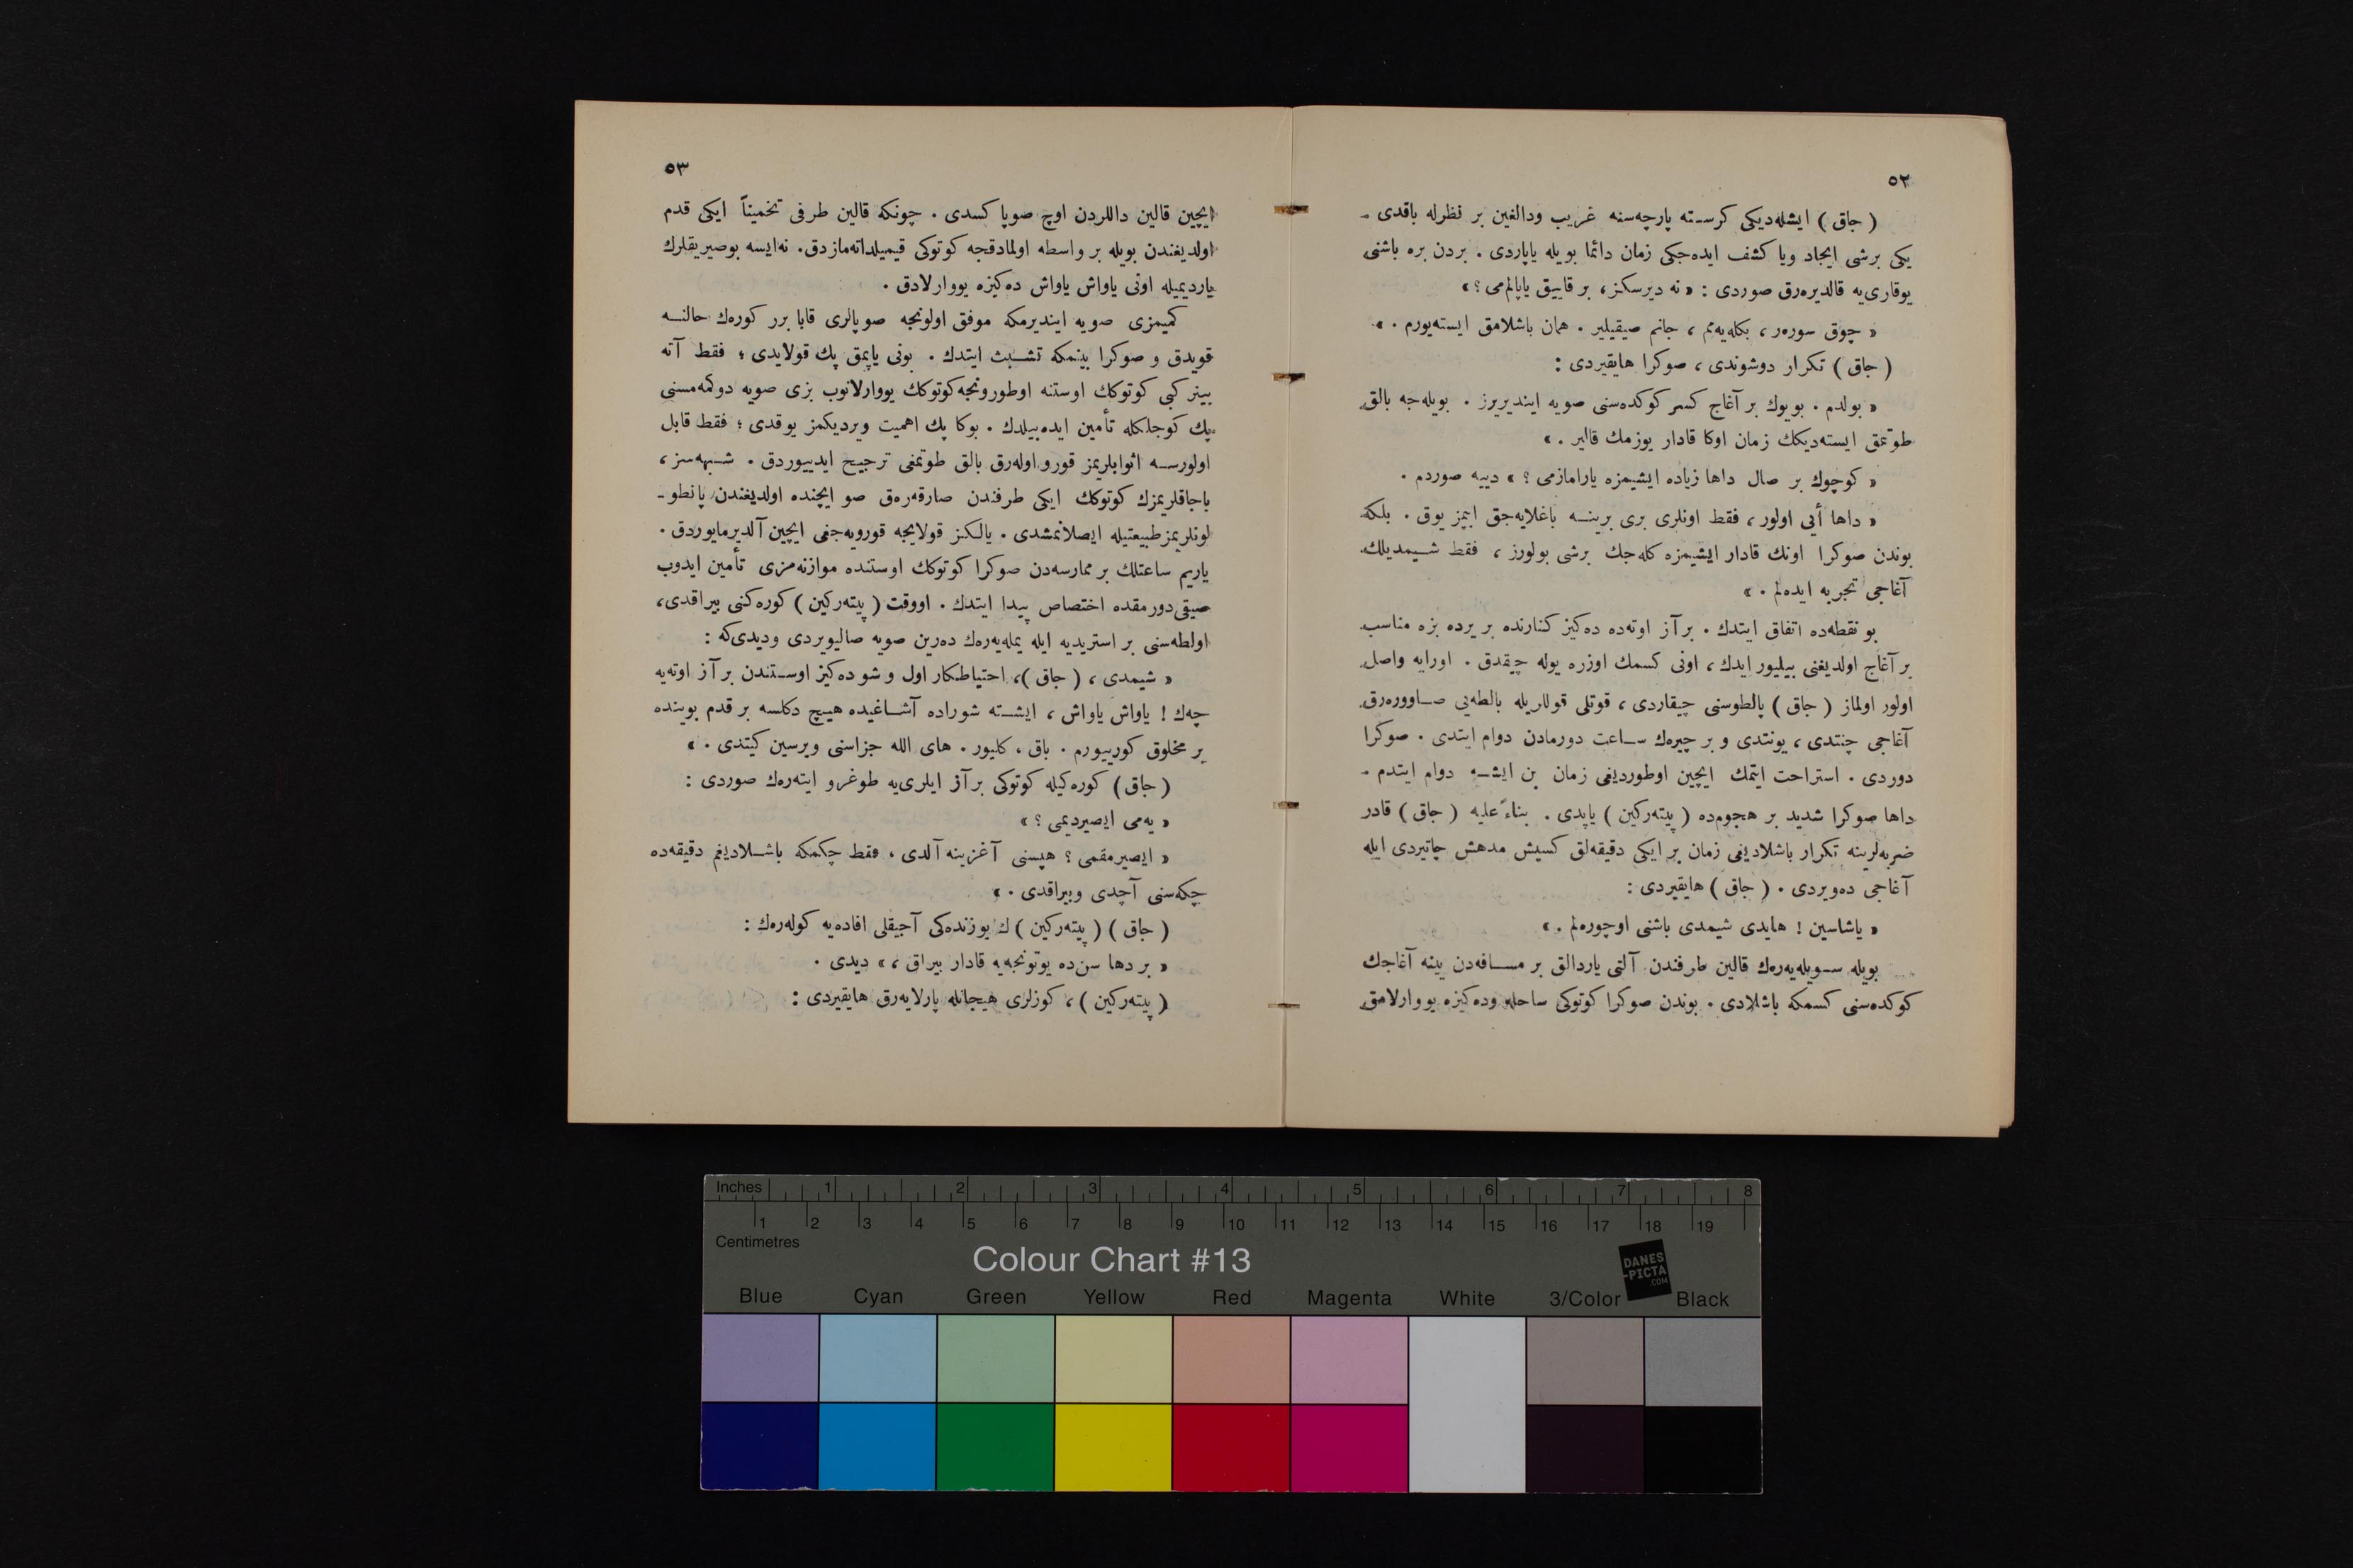 ٥٢
( جاق ) ایشله‌دیکی کرسته پارچه‌سنه غریب ودالغین بر نظرله باقدی .
یکی برشی ایجاد ویا کشف ایده‌جکی زمان دائما بویله یاپاردی . بردن بره باشنی
یوقاری‌یه قالدیره‌رق صوردی : « نه دیرسکز، بر قاییق یاپالم‌می ؟ »
« چوق سوره‌ر ، بکله‌یه‌مم ، جانم صیقیلیر . همان باشلامق ایسته‌یورم . »
( جاق ) تکرار دوشوندی ، صوکرا هایقیردی :
« بولدم . بویوك بر آغاج کسر کوکده‌سنی صویه ایندیریرز . بویله‌جه بالق
طوتمق ایسته‌دیکك زمان اوکا قادار یوزمك قالیر . »
« کوچوك بر صال داها زیاده ایشیمزه یارامازمی ؟ » دییه صوردم .
« داها أیی اولور ، فقط اونلری بری برینه باغلایه‌جق ایپمز یوق . بلکه
بوندن صوکرا اونك قادار ایشیمزه کله‌جك برشی بولورز ، فقط شیمدیلك
آغاجی تجربه ایده‌لم . »
بو نقطه‌ده اتفاق ایتدك . بر آز اوته‌ده ده‌کیز کنارنده بر یرده بزه مناسب
بر آغاج اولدیغنی بیلیور ایدك ، اونی کسمك اوزره یوله چیقدق . اورایه واصل
اولور اولماز ( جاق ) پالطوسنی چیقاردی ، قوتلی قوللریله بالطه‌یی صاووره‌رق
آغاجی چنتدی ، یونتدی و بر چیره‌ك ساعت دورمادن دوام ایتدی . صوکرا
دوردی . استراحت ایتمك ایچین اوطوردیغی زمان بن ایشه دوام ایتدم .
داها صوکرا شدید بر هجوم‌ده ( پیته‌رکین ) یاپدی . بناءً علیه ( جاق ) قادر
ضربه‌لرینه تکرار باشلادیغی زمان بر ایکی دقیقه‌لق کسیش مدهش چاتیردی ایله
آغاجی ده‌ویردی . ( جاق ) هایقیردی :
« یاشاسین ! هایدی شیمدی باشنی اوچوره‌لم . »
بویله سویله‌یه‌رك قالین طرفندن آلتی یاردالق بر مسافه‌دن یینه آغاجك
کوکده‌سنی کسمکه باشلادی . بوندن صوکرا کوتوکی ساحله وده‌کیزه یووارلامق
٥٣
ایچین قالین داللردن اوچ صوپا کسدی . چونکه قالین طرفی تخمیناً ایکی قدم
اولدیغندن بویله بر واسطه اولمادقجه کوتوکی قیمیلداته‌مازدق. نه‌ایسه بوصیریقلرك
یاردیمیله اونی یاواش یاواش ده‌کیزه یووارلادق .
کمیمزی صویه ایندیرمکه موفق اولونجه صوپالری قابا برر کوره‌ك حالنه
قویدق و صوکرا بینمکه تشبث ایتدك . بونی یاپمق پك قولایدی ؛ فقط آته
بینر کبی کوتوکك اوستنه اوطورونجه کوتوکك یووارلانوب بزی صویه دوکمه‌مسنی
پك کوجلکله تأمین ایده بیلدك . بوکا پك اهمیت ویردیکمز یوقدی ؛ فقط قابل
اولورسه اثوابلریمز قورو اوله‌رق بالق طوتمغی ترجیح ایدییوردق . شبهه‌سز ،
باجاقلریمزك کوتوکك ایکی طرفندن صارقه‌ره‌ق صو ایچنده اولدیغندن پانطو ـ
لونلریمز طبیعتیله ایصلانمشدی . یالکز قولایجه قورویه‌جغی ایچین آلدیرمایوردق .
یاریم ساعتلك بر ممارسه‌دن صوکرا کوتوکك اوستنده موازنه‌مزی تأمین ایدوب
صیقی دورمقده اختصاص پیدا ایتدك . اووقت ( پیته‌رکین ) کوره‌کنی بیراقدی ،
اولطه‌سنی بر استریدیه ایله یمله‌یه‌رك ده‌رین صویه صالیویردی ودیدی‌که :
« شیمدی ، ( جاق )، احتیاطکار اول و شو ده‌کیز اوستندن بر آز اوته‌یه
چه‌ك ! یاواش یاواش ، ایشته شوراده آشاغیده هیچ دکلسه بر قدم بوینده
بر مخلوق کورییورم . باق ، کلیور . های الله جزاسنی ویرسین کیتدی . »
( جاق ) کوره‌کیله کوتوکی بر آز ایلری‌یه طوغرو ایته‌ره‌ك صوردی :
« یه‌می ایصیردیمی ؟ »
« ایصیرمقمی ؟ هپسنی آغزینه آلدی ، فقط چکمکه باشلادیغم دقیقه‌ده
چکه‌سنی آچدی وبیراقدی . »
( جاق ) ( پیته‌رکین ) ك یوزنده‌کی آجیقلی افاده‌یه کوله‌ره‌ك :
« بر دها سن‌ده یوتونجه‌یه قادار بیراق ، » دیدی .
( پیته‌رکین ) ، کوزلری هیجانله پارلایه‌رق هایقیردی :
Inches 1 2 3 4 5 6 7 8
1 2 3 4 5 6 7 8 9 10 11 12 13 14 15 16 17 18 19
Centimetres
Colour Chart #13
DANES
-PICTA
.COM
Blue Cyan Green Yellow Red Magenta White 3/Color Black